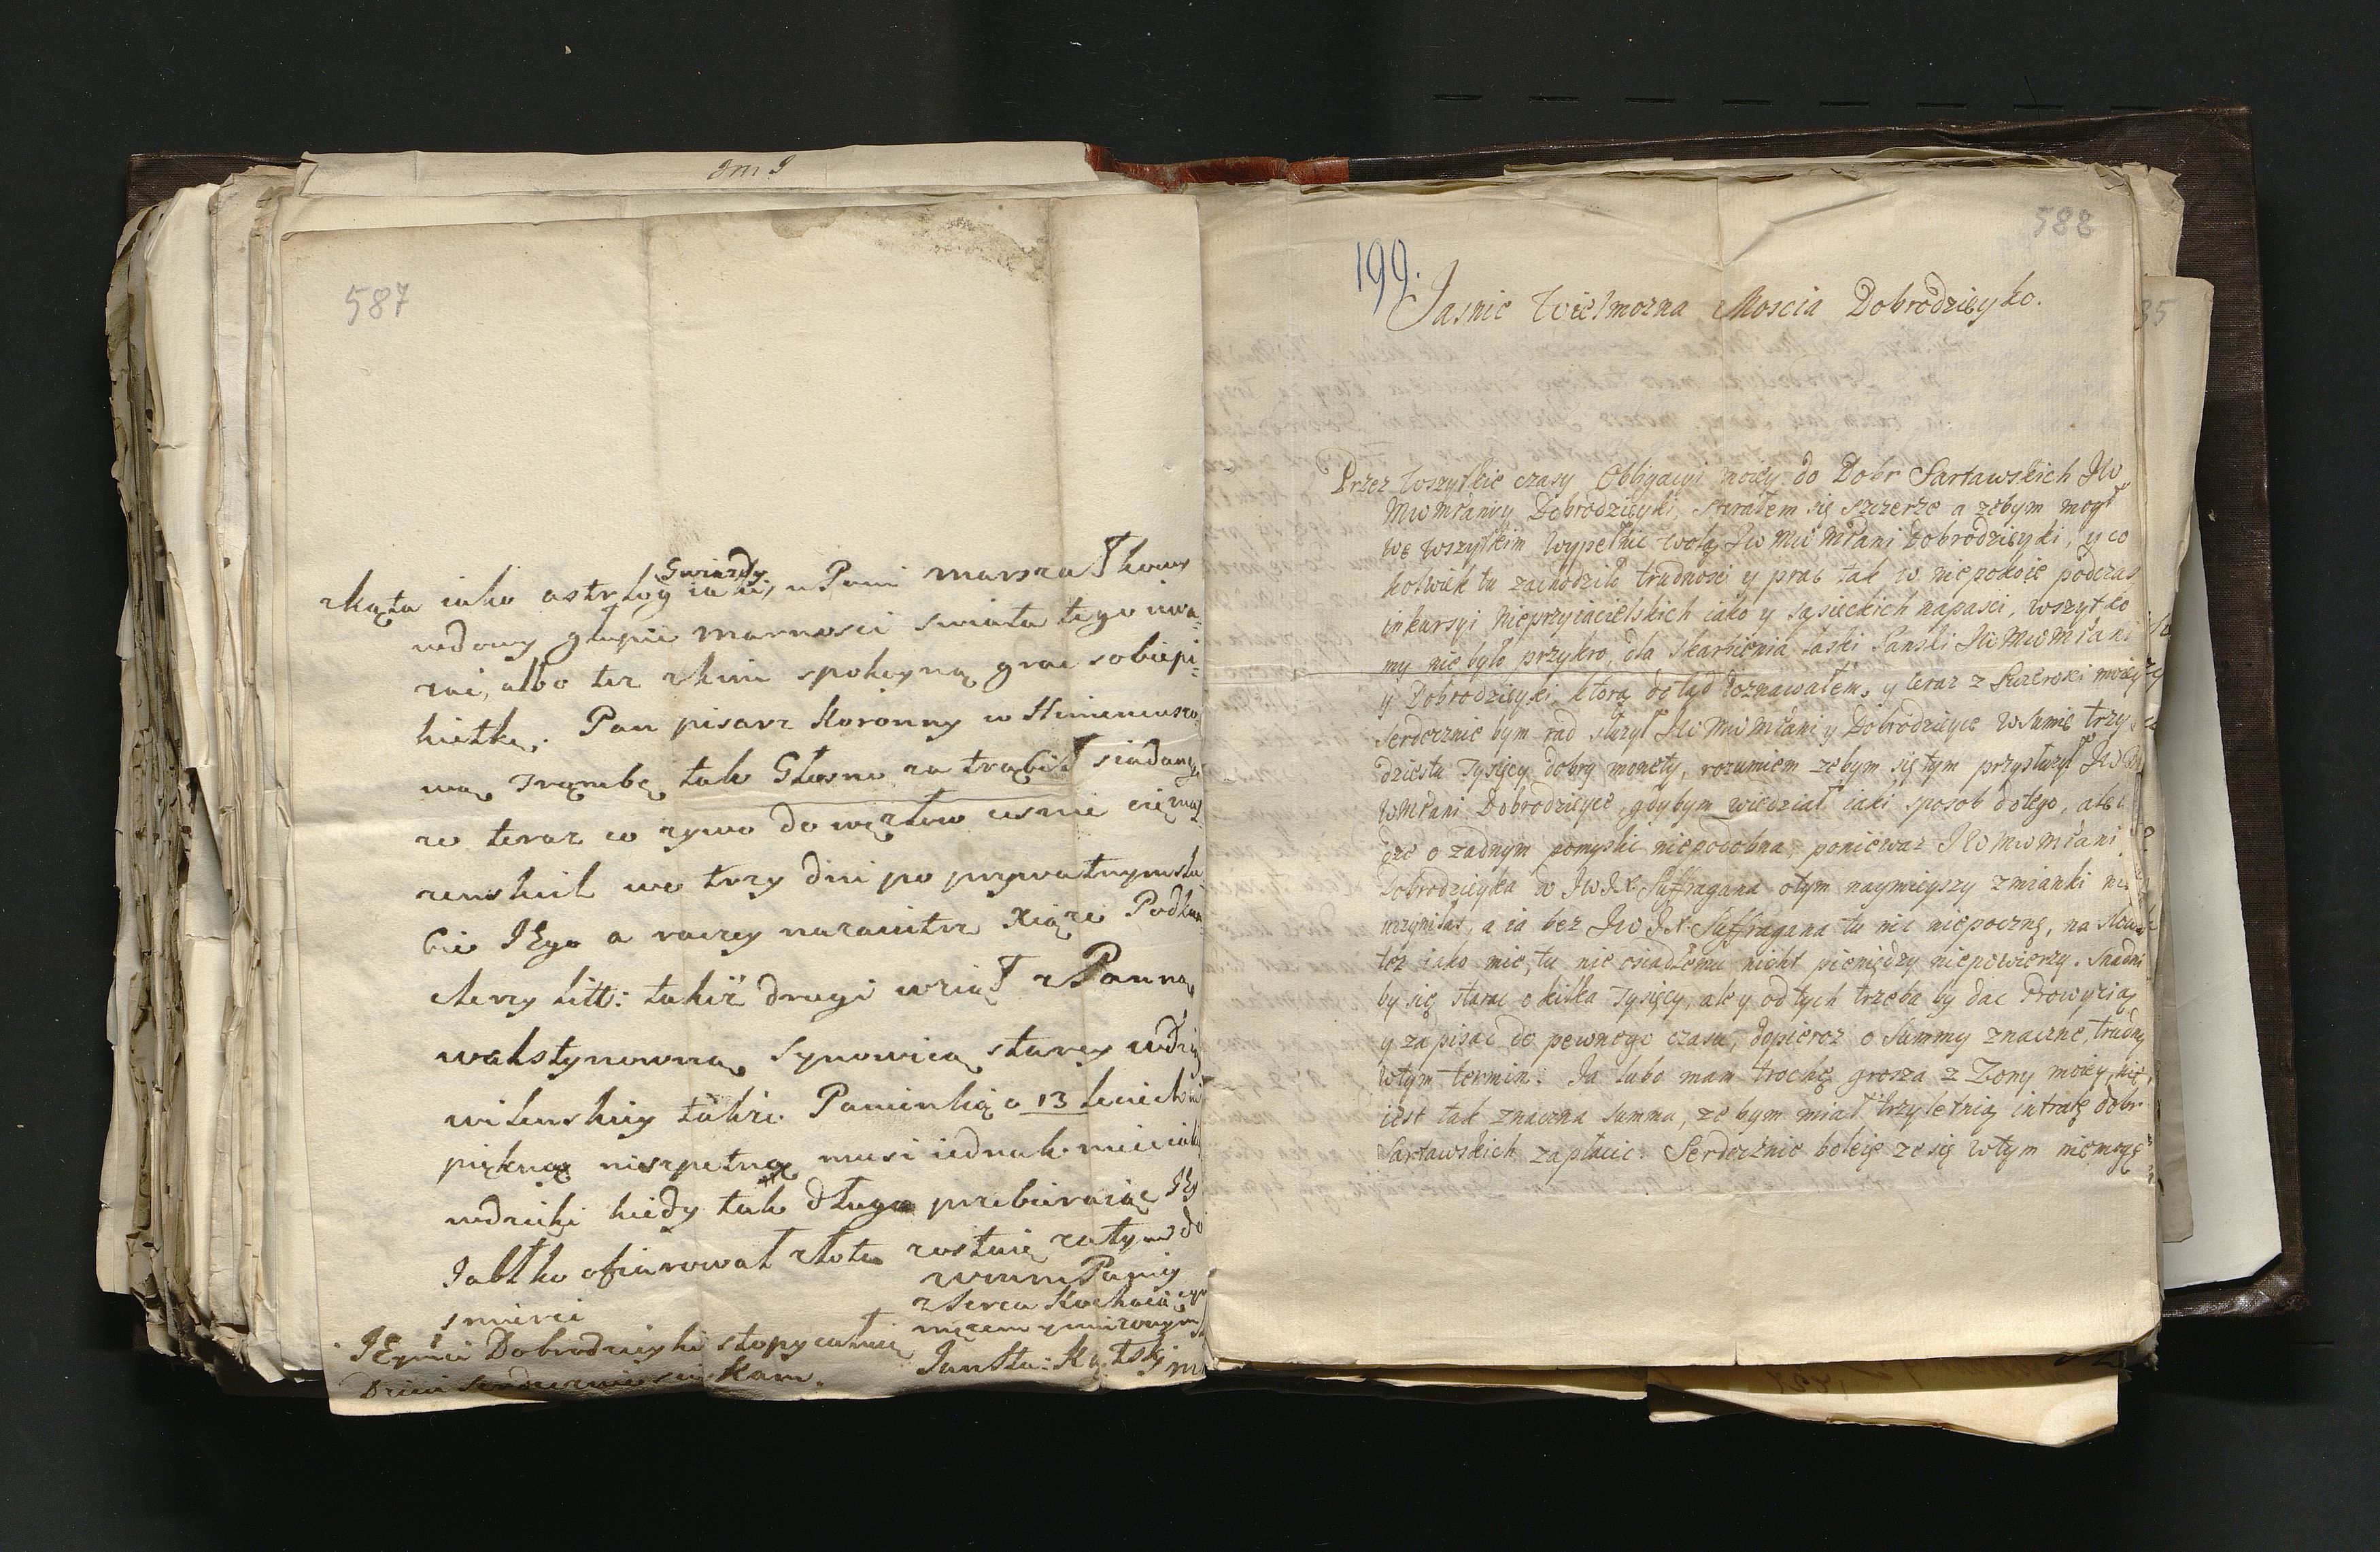 587
zkąta iako astrolog Gwiazdy iaki, u Pani marszałkowy
nadowny głupie marnosci swiata tego uwa-
zai, albo tez z kim spokoyną grac sobie pi-
kietkę. Pan pisarz Koronny w Himeneuszo
wą Trąmbę tak Głosno zatrąbił siadany
ze teraz co zywo do węzłow
we trzy dni po prywatnym slu
bie JEgo a raczey nazaiutrz Xiąze Podka
clerzy litt: takiż drugi wziął z Panną
walstynowną Synowicą starey
wilenskiey także Panienką o 13 leciech
piękną nieszpetną musi iednak miec iakies
wdzięki kiedy tak długo przebieraiąc JEy
Jabłko ofiarował złote zostaię zatym do
smierci
wmm Paniey
z serca Kochaiącym
męzem y unizonym
JEymci Dobrodzieyki stopy całuię
Dzieci serdecznie sciskam.
Jan
588
199.
Jasnie Wielmozna Moscia Dobrodzieyko.
Przez wszytkie czasy Obligacyi moiey do Dobr Sartawskich JW
MWMPaniey Dobrodzieyki, starałem się szczerze a zebym mogł
we wszytkim wypełnic wolą JW MW MPani Dobrodzieyki, y co
kolwiek tu zachodziło trudnosci y prac tak w niepokoie podczas
inkursyi Nieprzyiacielskich iako y sąsieckich napasci, wszytko
my nie było przykro, dla skarbienia łaski Panski JWMWMPani
y Dobrodzieyki, ktorą dotąd doznawałem, y teraz z
serdecznie bym rad słuzył JW MWMPaniey Dobrodzieyce w Sumie trzy
dziestu Tysięcy dobry monety, rozumiem zebym się tym przysłuzył JW M
WMPani Dobrodzieyce, gdy bym wiedział iaki sposob do tego, ale i
ze o zadnym pomysli niepodobna, poniewaz JWMWMPani
Dobrodzieyka w JWJX. Suffragana o tym naymnieyszy zmianki nie
uczyniłas, a ia bez JWJX. Suffragana tu nic niepocznę, na
toz iako mie, tu nie osiadłemu nicht pieniędzy niepowierzy. Snadni
by się starac o kilka Tysięcy, ale y od tych trzeba by dac Prowyzią
y zapisac do pewnego czasu, dopieroz o Summy znaczne, trudny
w tym termin. Ja lubo mam trochę grosza z Zony moiey, nie
iest tak znaczna summa, ze bym miał trzyletnią intratę dobr
Sartawskich zapłacic. Serdecznie boleię ze się w tym niemogę